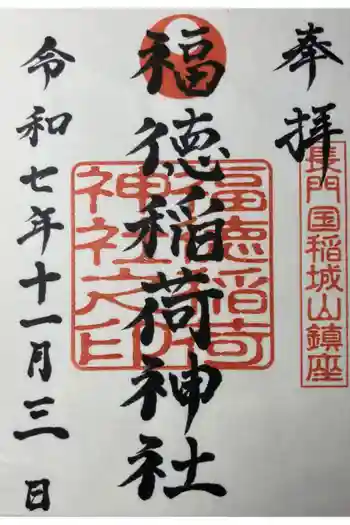 奉拝
長門国稲城山鎮座
福徳稲荷神社
福徳稲荷
神社之印
令和七年十一月三日